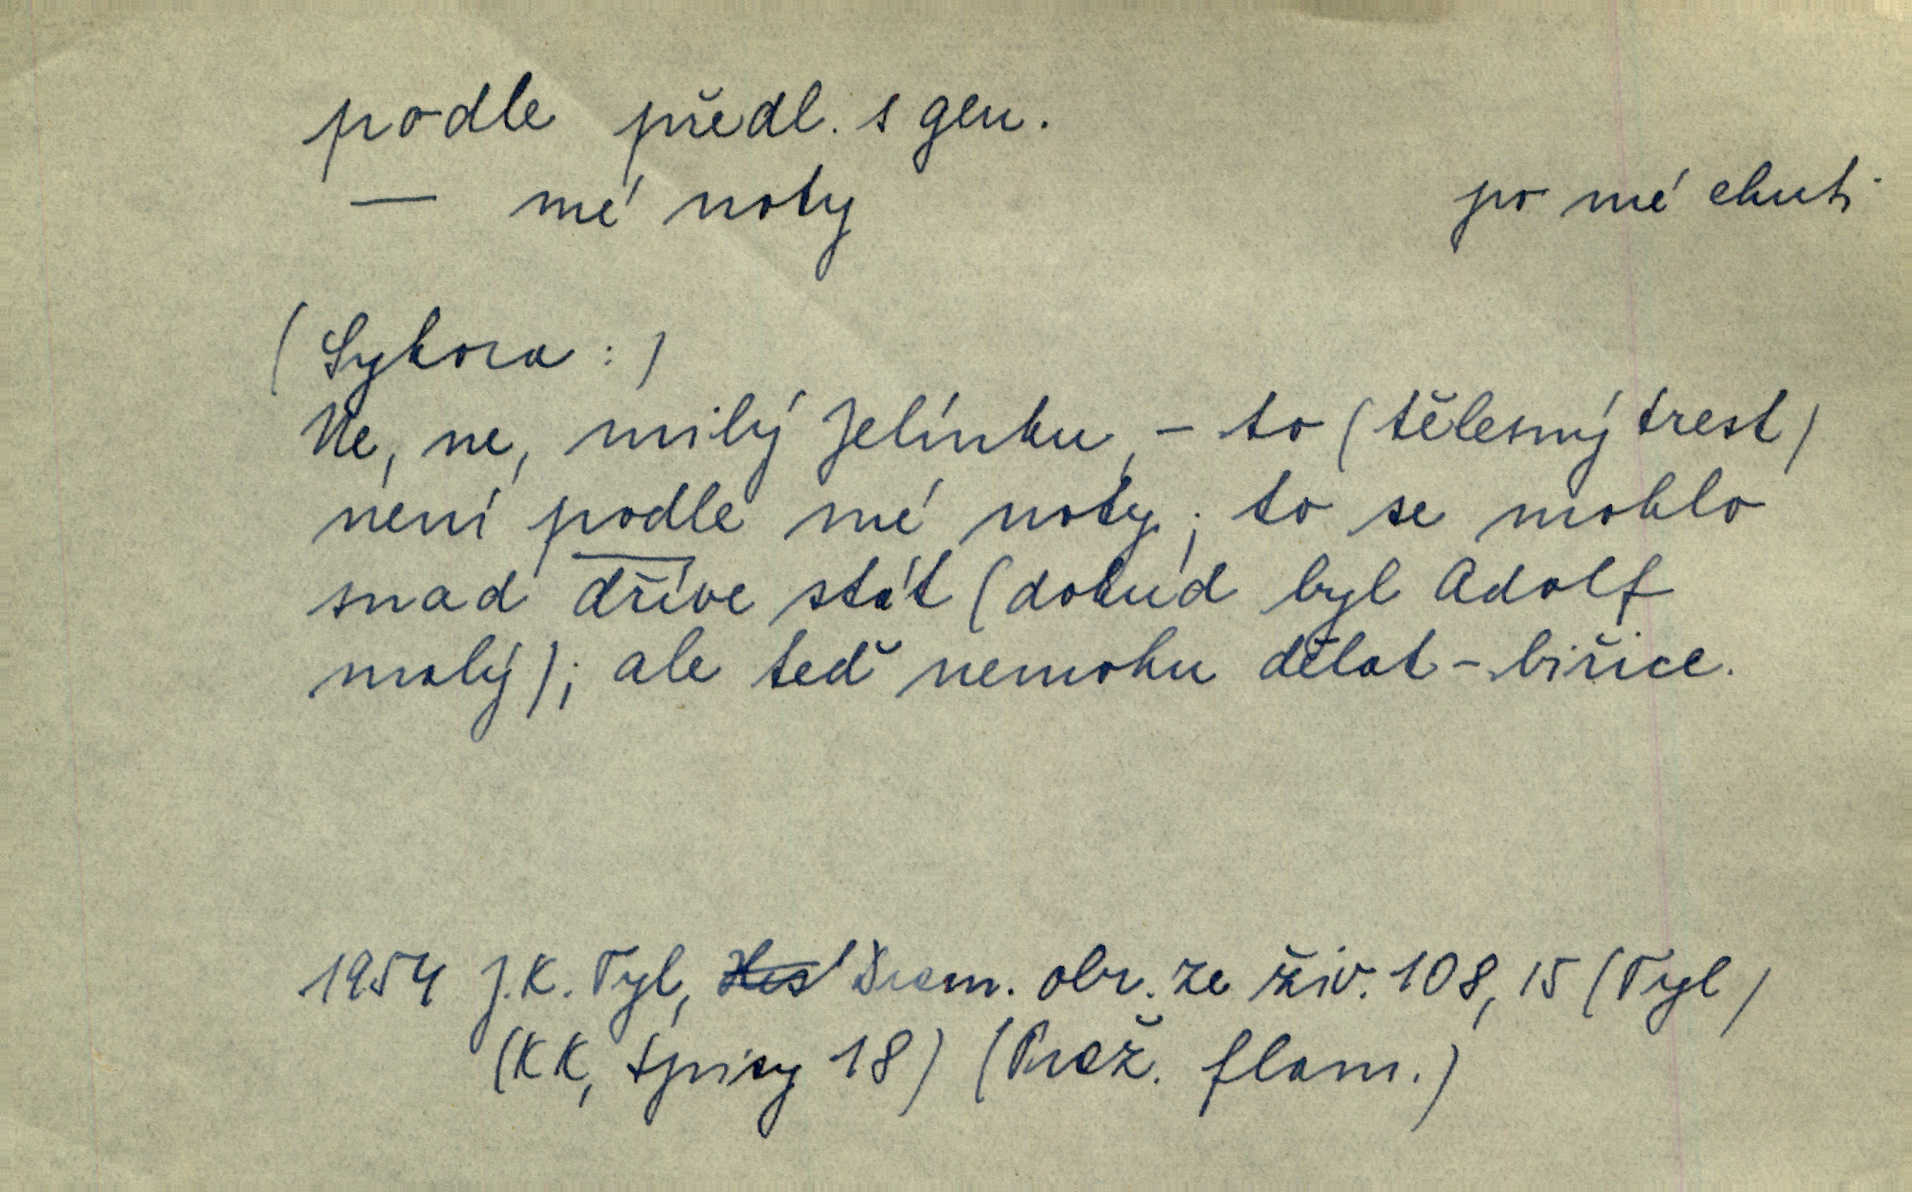 podle předl. s gen.
— mé noty po mé chuti
(Sykora:)
Ne, ne, milý Jelínku, – to (tělesný trest)
není podle mé noty; to se mohlo
snad dříve stát (dokud byl Adolf
malý); ale teď nemohu dělat – biřice.
1954 J.K. Tyl, Dram. obr. ze živ. 108, 15 (Tyl)
(KK, Spisy 18) (Praž. flam.)